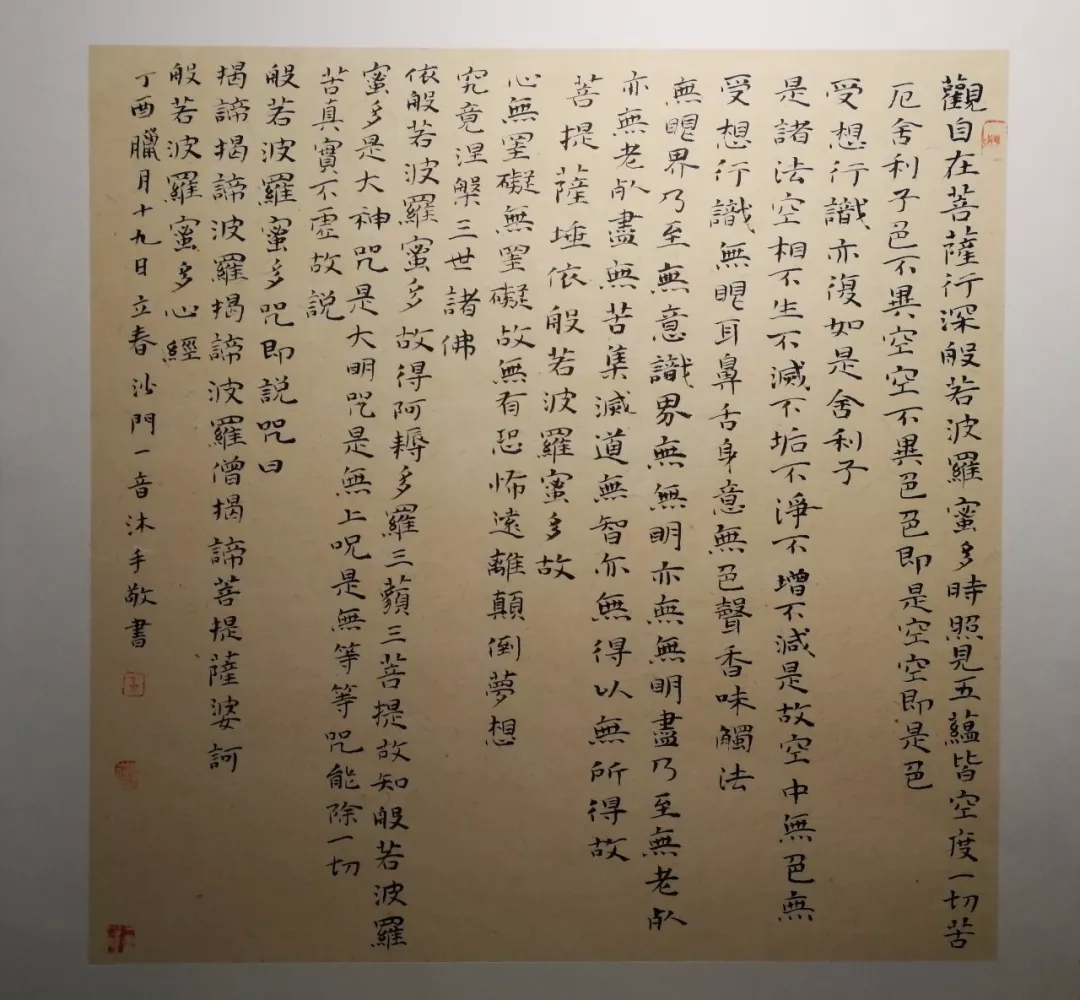 觀自在菩薩行深般若波羅蜜多時照見五蘊皆空度一切苦
厄舍利子色不異空空不異色色即是空空即是色
受想行識亦復如是舍利子
是諸法空相不生不滅不垢不淨不增不減是故空中無色無
受想行識無眼耳鼻舌身意無色聲香味觸法
無眼界乃至無意識界無無明亦無無明盡乃至無老死
亦無老死盡無苦集滅道無智亦無得以無所得故
菩提薩埵依般若波羅蜜多故
心無罣礙無罣礙故無有恐怖遠離顛倒夢想
究竟涅槃三世諸佛
依般若波羅蜜多故得阿耨多羅三藐三菩提故知般若波羅
蜜多是大神咒是大明咒是無上呪是無等等咒能除一切
苦真實不虛故說
般若波羅蜜多咒即說咒曰
揭諦揭諦波羅揭諦波羅僧揭諦菩提薩婆訶
般若波羅蜜多心經
丁酉臘月十九日立春沙門一音沐手敬書